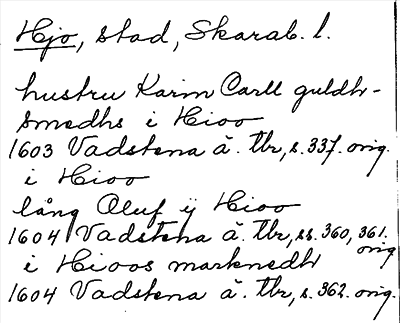 Hjo, stad, Skarab. l.
hustru Karin Carll guldh-
smedhs i Hioo
1603 Vadstena ä. tbr, s. 337. orig.
i Hioo
lång Oluf ij Hioo
1604 Vadstena ä. tbr, ss. 360, 361. orig
i Hioos marknedh
1604 Vadstena ä. tbr, s. 362. orig.